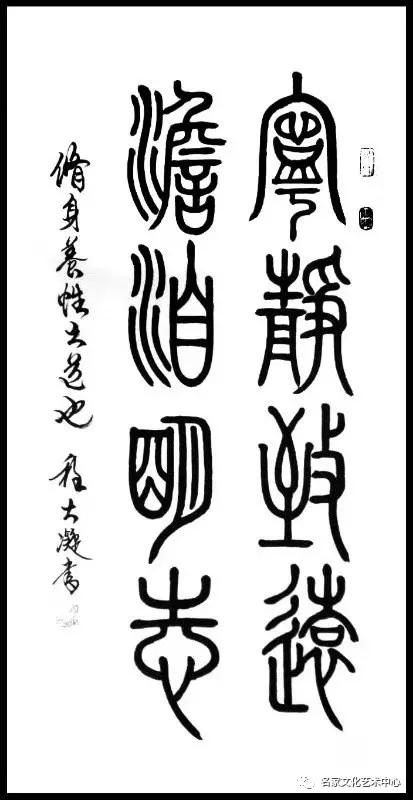 寧靜致遠
澹泊明志
脩身養性之道也 程大凝書
名家文化艺术中心